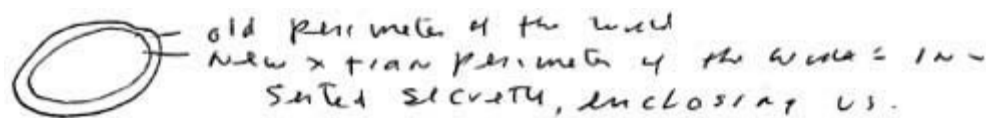 old perimeter of the world
New xtian perimeter of the world = in-
serted secretly, enclosing us.